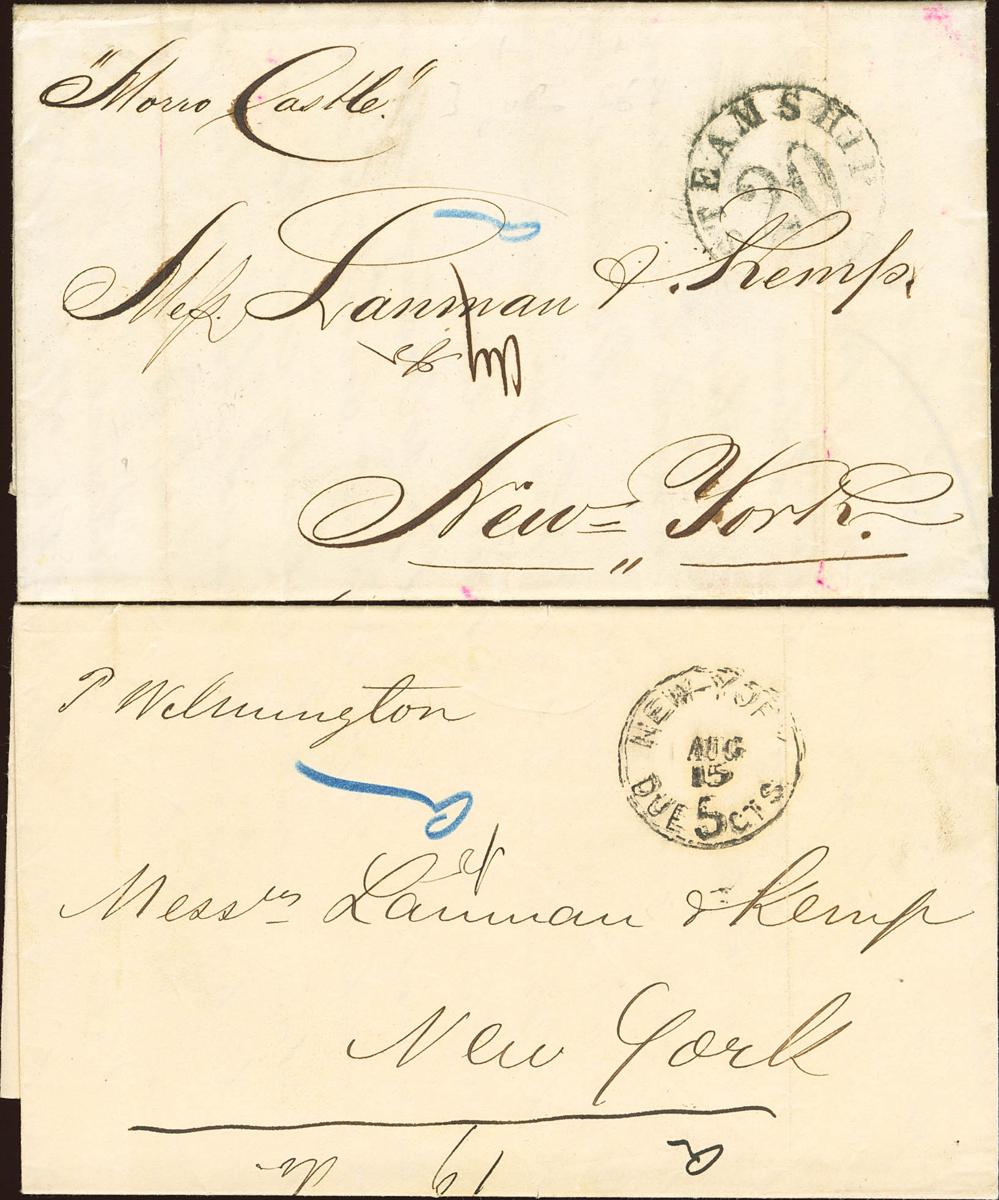 "Morro Castle."
STEAMSHIP
20
Mess. Lanman & Kemp.
New York.
P Wilmington
NEW-YORK
AUG
15
DUE 5 CTS
Messrs Lanman & Kemp
New York